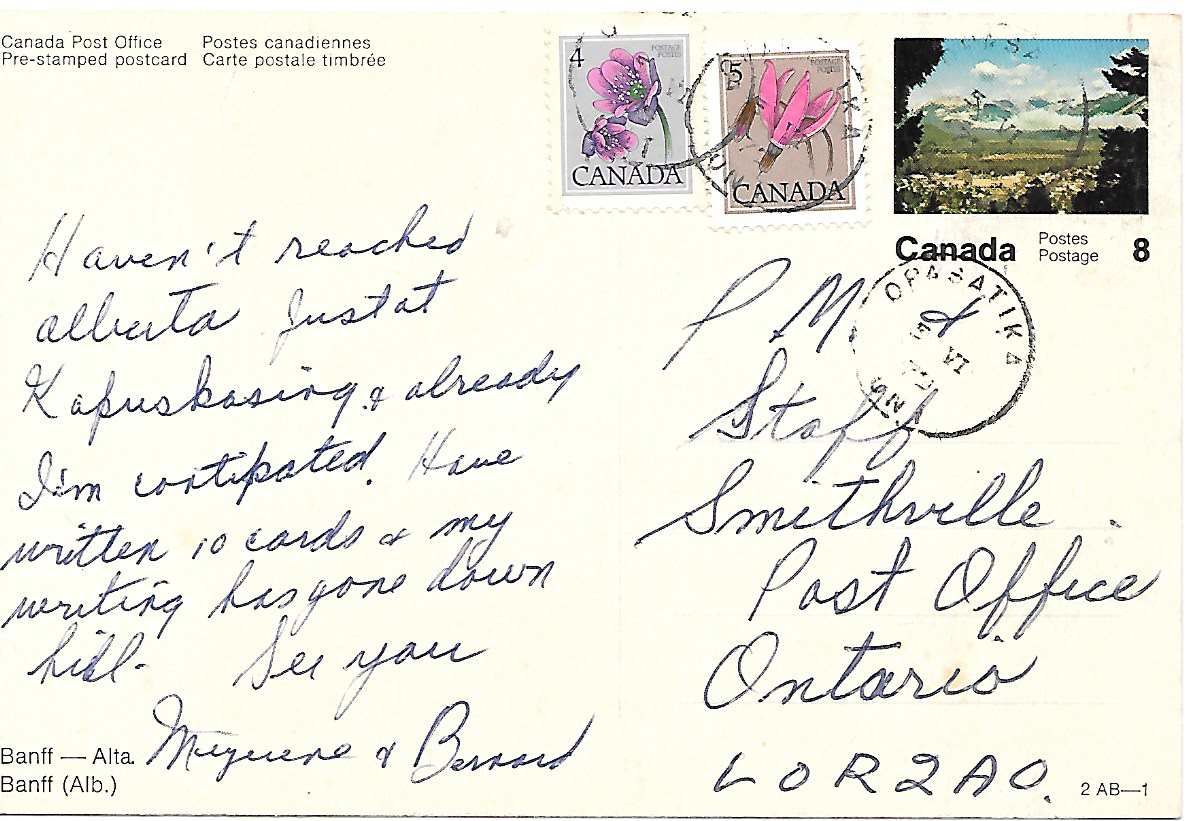 Canada Post Office Postes canadiennes
Pre-stamped postcard Carte postale timbrée
4 POSTAGE POSTES
CANADA
5 POSTAGE POSTES
CANADA
Canada Postes Postage 8
OPASATIKA
Haven't reached
Alberta Just at
Kapuskasing & already
I'm contipated. Have
written 10 cards & my
writing has gone down
hill. See you
& Bernard
P.M. &
Staff
Smithville
Post Office
Ontario
L0R2A0.
Banff — Alta.
Banff (Alb.)
2 AB—1